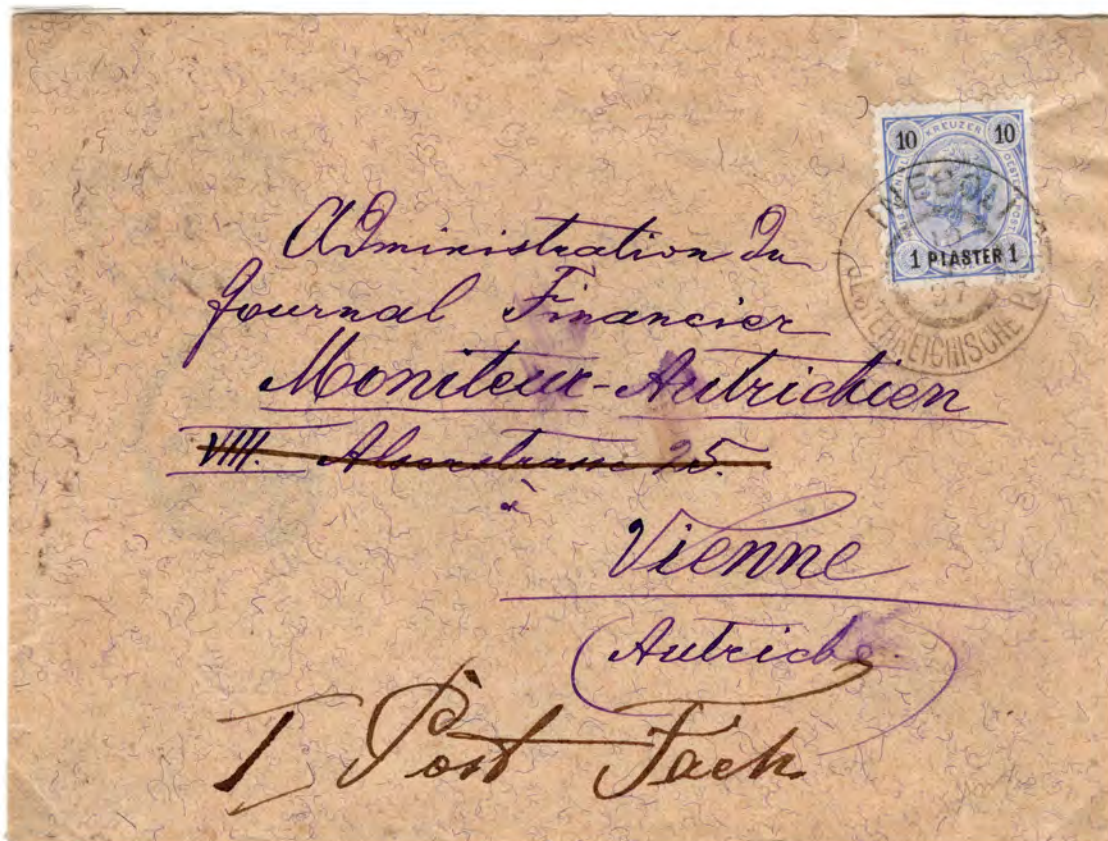 10 KREUZER 10
1 PIASTER 1
97
OESTERREICHISCHE P
Administration du
Journal Financier
Moniteur-Autrichien
VIII. Alserstrasse 25.
à
Vienne
Autriche.
I Post Fach